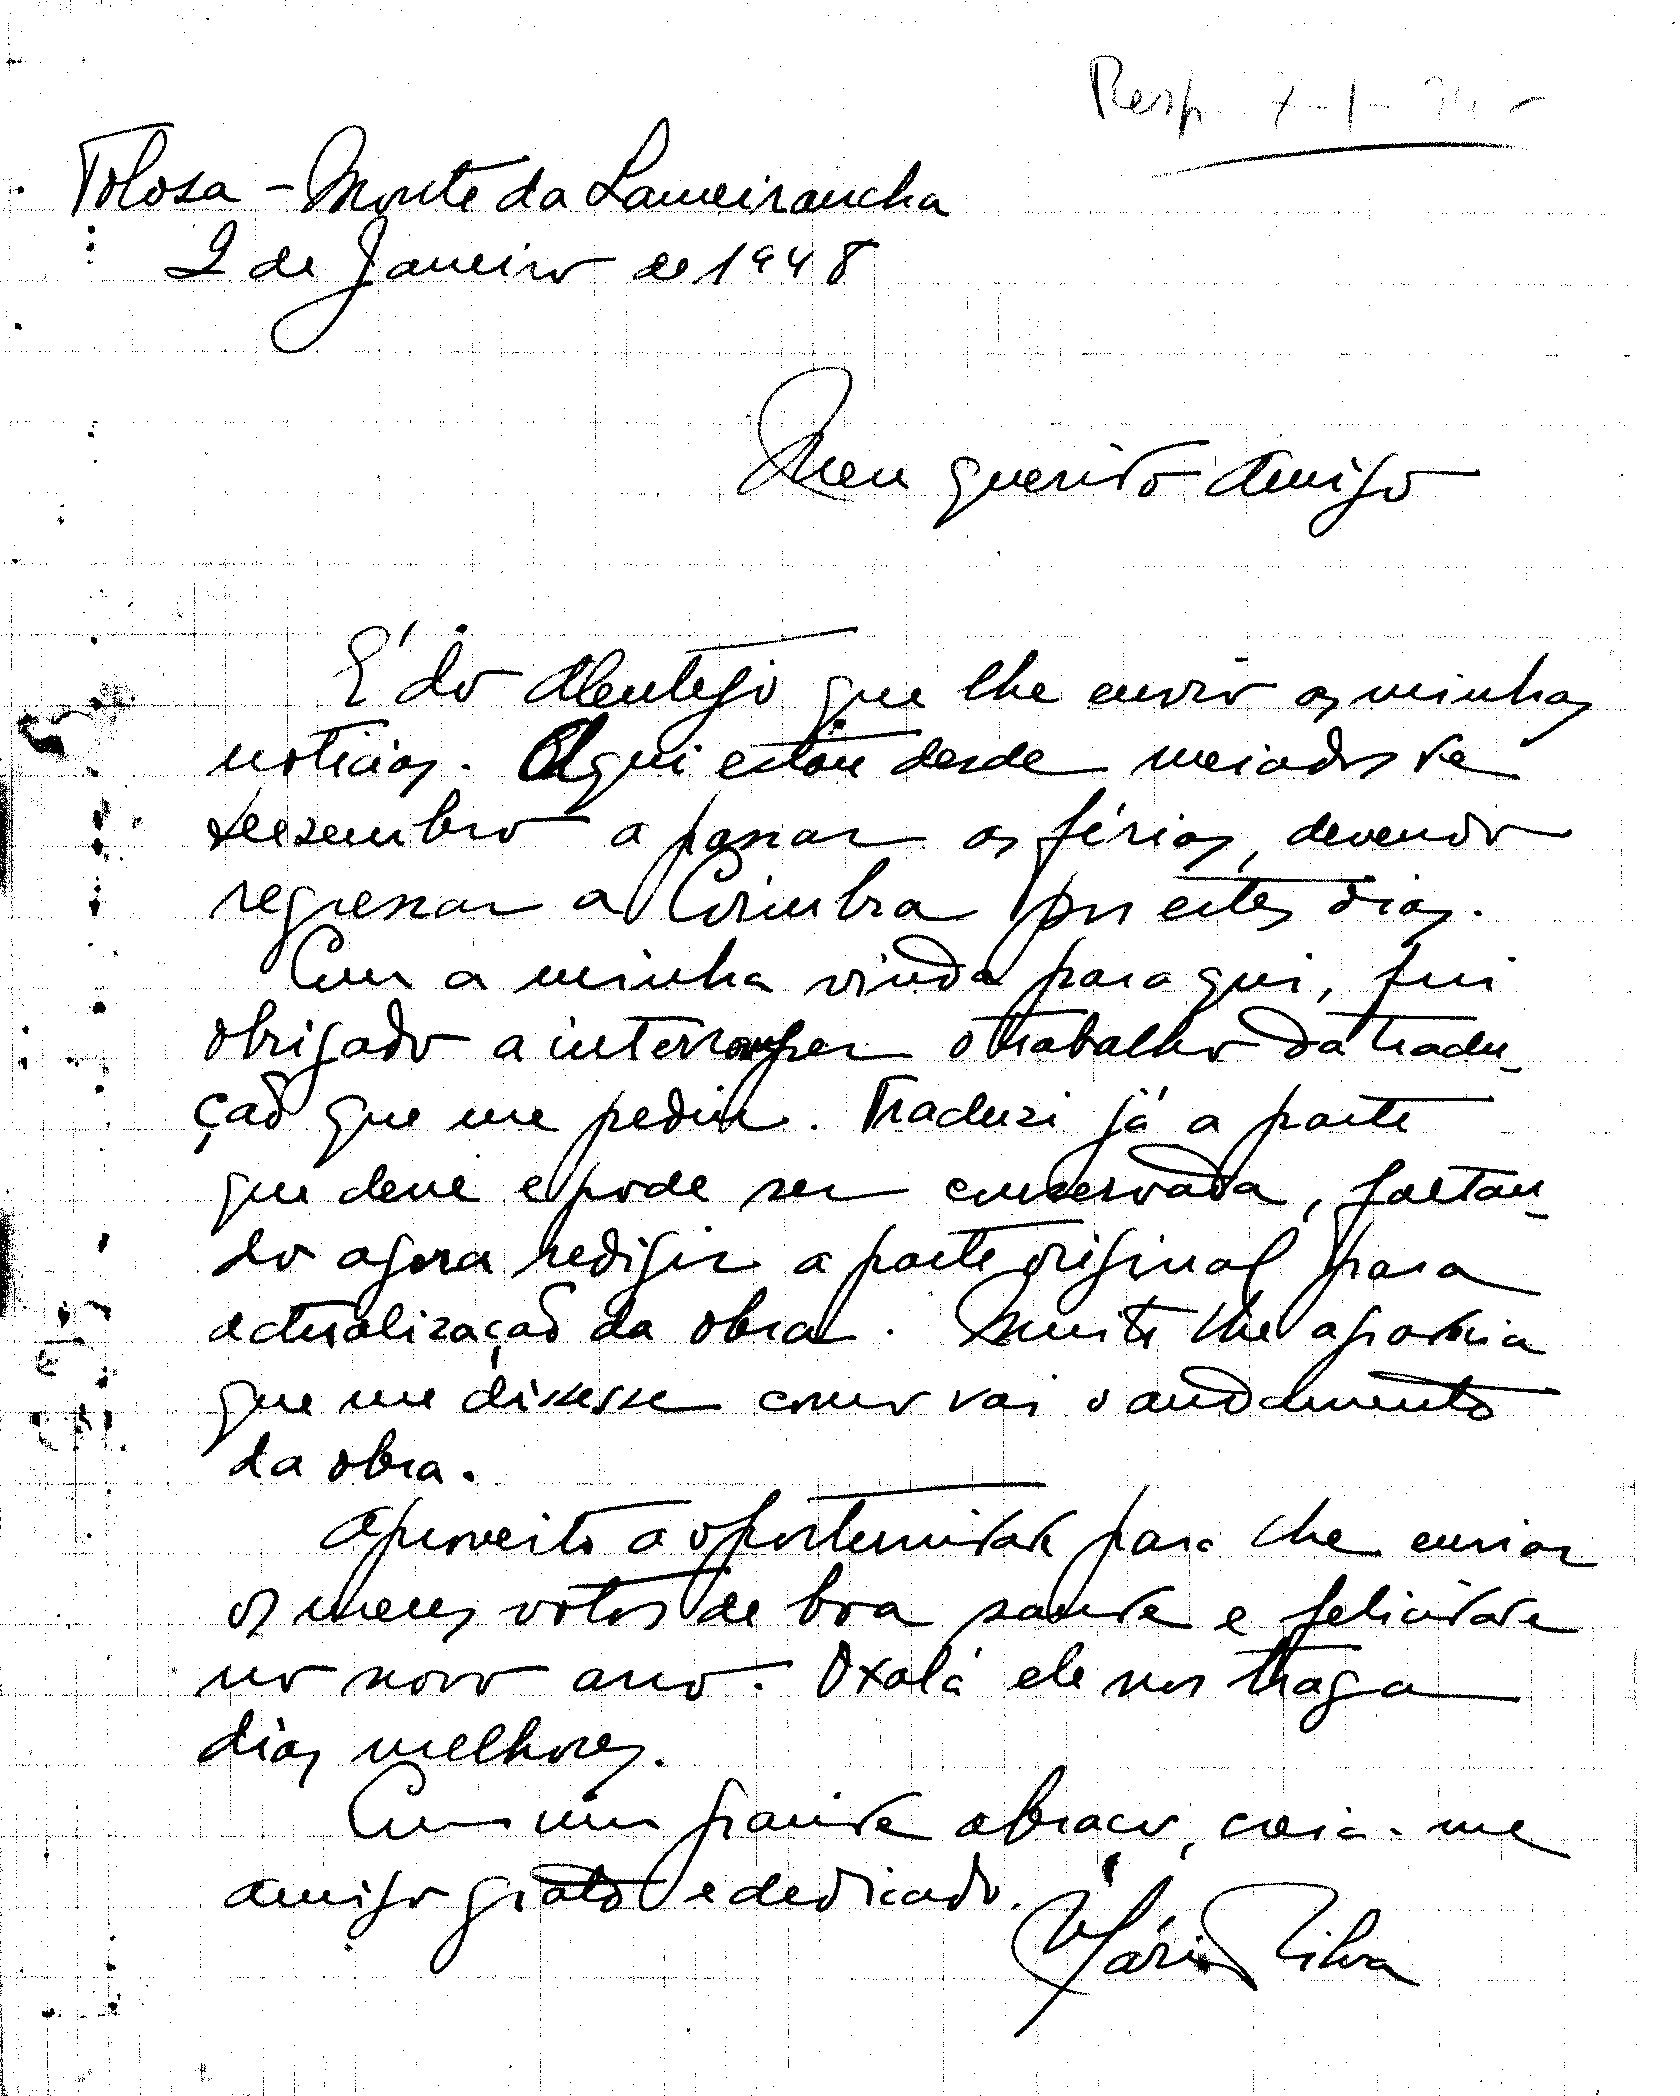 Resp. 7-1-
Tolosa - Monte da Lameirancha
2 de Janeiro de 1948
Meu querido Amigo
É do Alentejo que lhe envio as minhas
notícias. Aqui estou desde meiados de
dezembro a passar as férias, devendo
regressar a Coimbra por estes dias.
Com a minha vinda para qui, fui
obrigado a interromper o trabalho da tradu-
ção que me pediu. Traduzi já a parte
que deve e pode ser conservada, faltan-
do agora redigir a parte original para
actualização da obra. Muito lhe agradecia
que me dissesse como vai o andamento
da obra.
Aproveito a oportunidade para lhe enviar
os meus votos de boa saude e felicidade
no novo ano. Oxalá ele nos traga
dias melhores.
Com um grande abraço, creia-me
amigo grato e dedicado.
Mário Silva